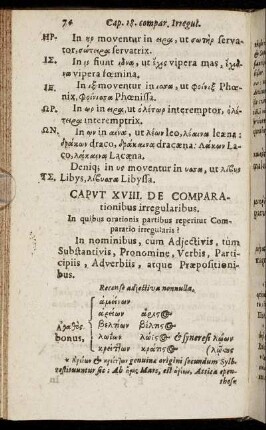 74 Cap. 18. compar. Irregul.
ΗΡ. In ηρ moventur in ειρα, ut σωτὴρ servator, σώτειρα servatrix.
ΙΣ. In ις fiunt ιδνα, ut ἔχις vipera mas, ἔχιδνα vipera fœmina.
ΙΞ. In ιξ moventur in ισσα, ut φοίνιξ Phœnix, φοίνισσα Phœnissa.
ΩΡ. In ωρ in ειρα, ut ὀλέτωρ interemptor, ὀλέτειρα interemptrix.
ΩΝ. In ων in αινα, ut λέων leo, λέαινα leæna:
δράκων draco, δράκαινα dracæna: Λάκων Laco, λάκαινα Lacæna.
Deniq; in υς moventur in υσσα, ut λίβυς
ΥΣ. Libys, λίβυσσα Libyssa.
CAPUT XVIII. DE COMPARA-
tionibus irregularibus.
In quibus orationis partibus reperitur Comparatio irregularis?
In nominibus, cum Adjectivis, tùm
Substantivis, Pronomine, Verbis, Parti-
cipiis, Adverbiis, atque Præpositioni-
bus.
Recense adjectiva nonnulla.
ἀμείνων
ἀρείων ἄριστος
Ἀγαθὸς βελτίων βέλτιστος
bonus, λωΐων λώϊστος & syneresi λώων
κρείττων κράτιστος (λῷστος
genuina origini secundum Sylb.
restituuntur sic: Ab ἄρης Mars, est ἀρείων, Attica epen-
these